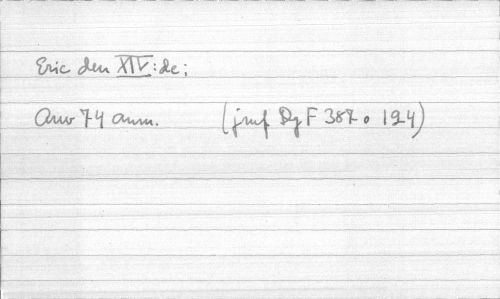 Eric den XIV:de;
Anv 74 anm. (jmf Dg F 387 o 194)